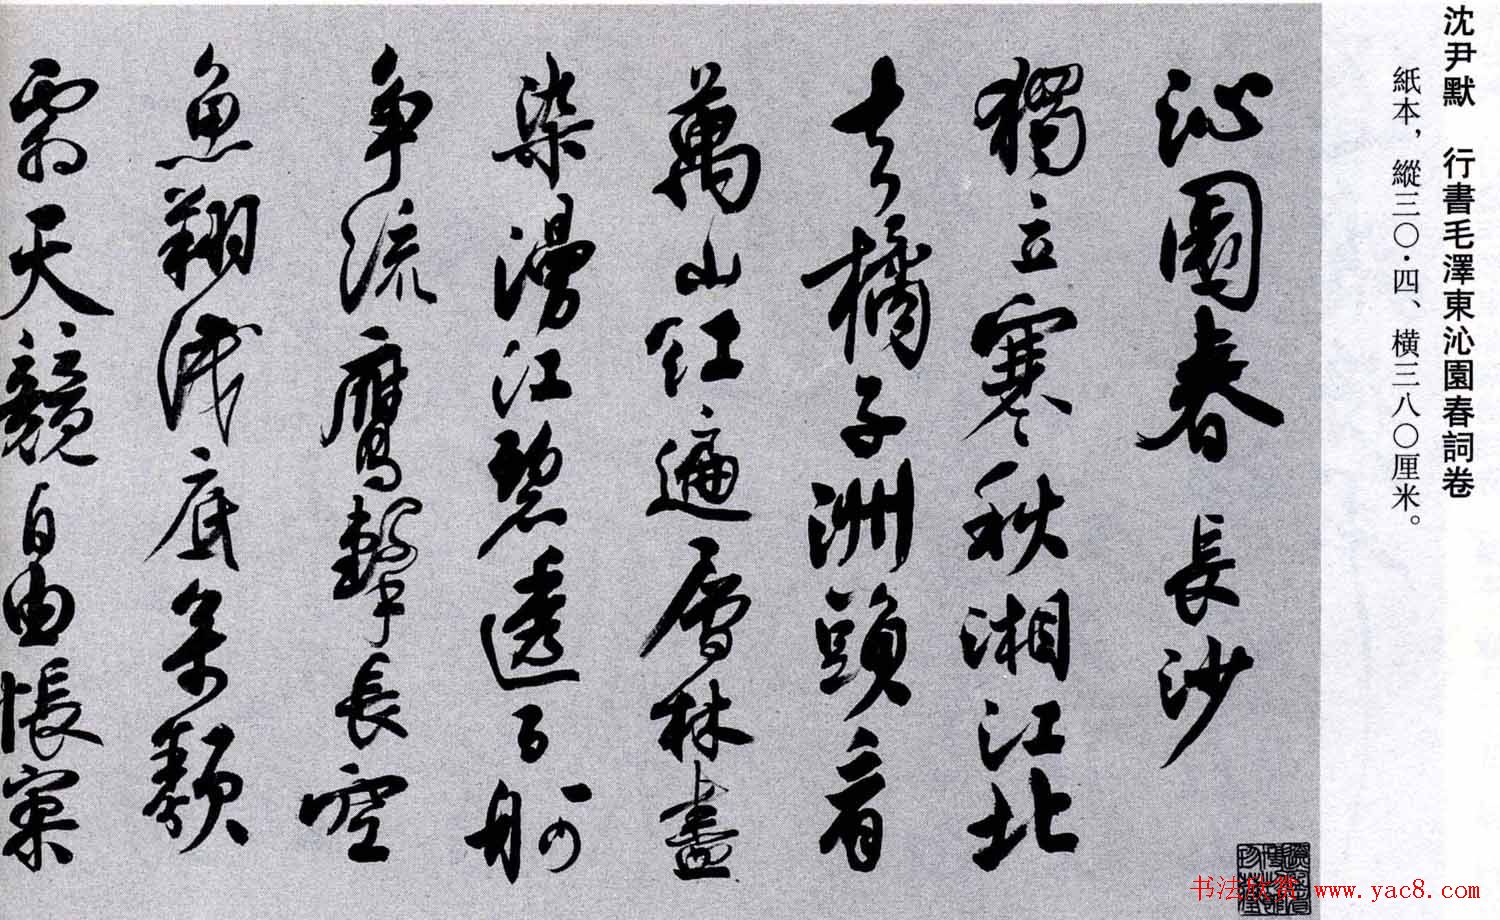 沈尹默　行書毛澤東沁園春詞卷
紙本，縱三〇·四、橫三八〇厘米。
沁園春 長沙
獨立寒秋湘江北
去橘子洲頭看
萬山紅遍層林盡
染漫江碧透百舸
爭流鷹擊長空
魚翔淺底萬類
霜天競自由悵寥
书法欣赏 www.yac8.com